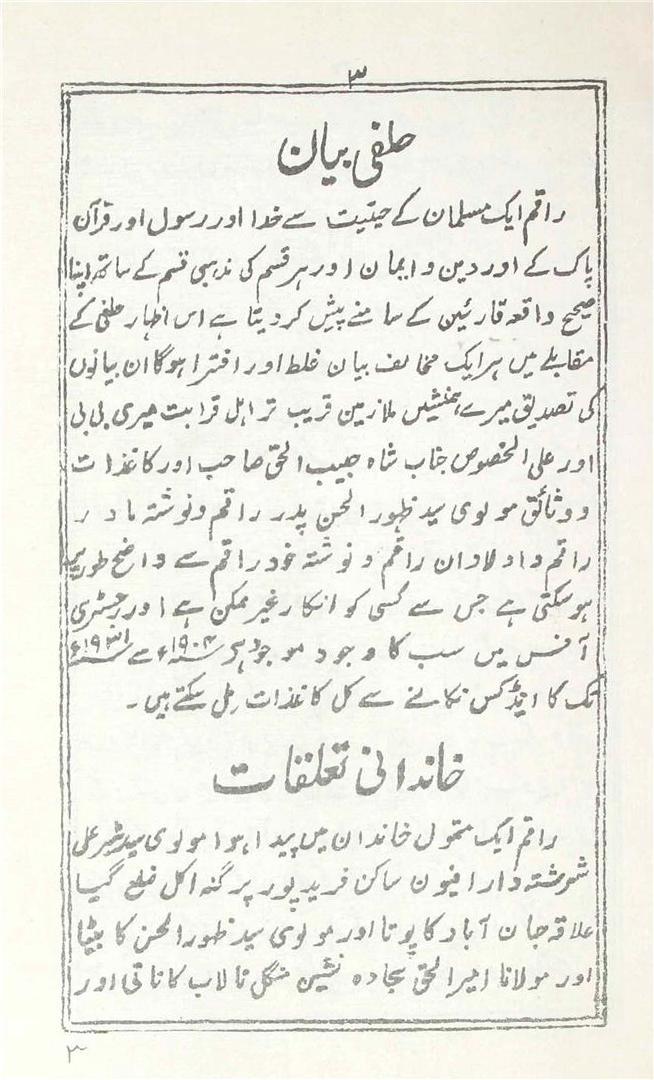 ۳
حلفی بیان
راقم ایک مسلمان کے حیثیت سے خدا اور رسول اور قرآن
پاک کے اور دین و ایمان اور ہر قسم کی مذہبی قسم کے ساتھ اپنا
صحیح واقعہ قارئین کے سامنے پیش کر دیتا ہے اس اظہار حلفی کے
مقابلے میں ہر ایک مخالف بیان غلط اور افترا ہوگا ان بیانوں
کی تصدیق میرے ہمنشیں ملازمین قریب تر اہل قرابت میری بی بی
اور علی الخصوص جناب شاہ حبیب الحق صاحب اور کاغذات
و وثائق مولوی سید ظہور الحسن پدر راقم و نوشتہ مادر
راقم و اولادان راقم و نوشتہ خود راقم سے واضح طور سے
ہو سکتی ہے جس سے کسی کو انکار غیر ممکن ہے اور رجسٹری
آفس میں سب کا وجود موجود ہے ۱۹۰۴ء سے ۱۹۳۱ء
تک کا انڈکس نکالنے سے کل کاغذات مل سکتے ہیں۔
خاندانی تعلقات
راقم ایک متمول خاندان میں پیدا ہوا مولوی سید شیر علی
شوشتہ دار افیون ساکن فرید پور پرگنہ اکل ضلع گیا
علاقہ جہان آباد کا پوتا اور مولوی سید ظہور الحسن کا بیٹا
اور مولانا امیر الحق سجادہ نشین منگل تالاب کا ناتی اور
۳